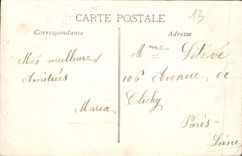 CARTE POSTALE
13
Correspondance
Adresse
Mes meilleures
Amitiés
Maria
Mme Stévé
106 Avenue de
Clichy
Paris
Seine